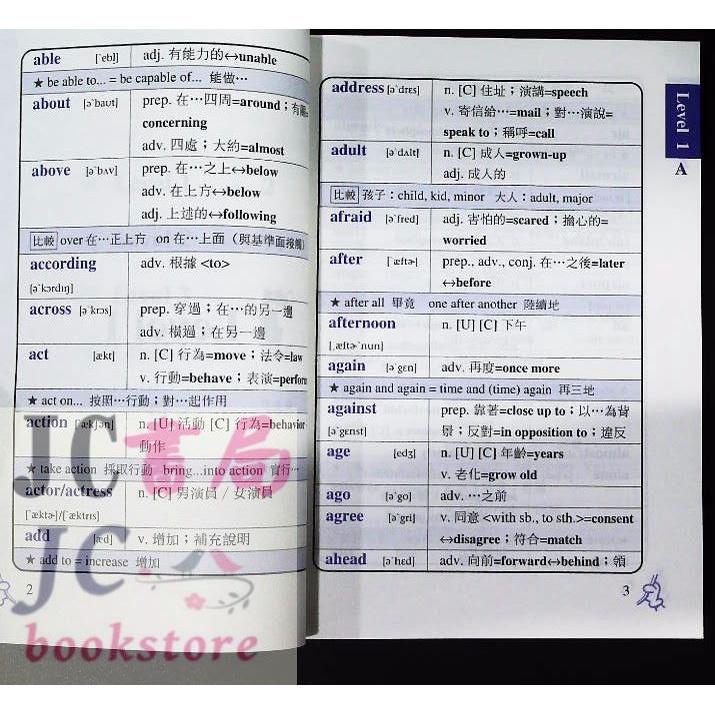 able [ˋebḷ] adj. 有能力的↔unable
★ be able to... = be capable of... 能做…
about [əˋbaʊt] prep. 在…四周=around；有關=
concerning
adv. 四處；大約=almost
above [əˋbʌv] prep. 在…之上↔below
adv. 在上方↔below
adj. 上述的↔following
比較 over 在…正上方 on 在…上面 (與基準面接觸)
according adv. 根據 <to>
[əˋkɔrdɪŋ]
across [əˋkrɔs] prep. 穿過；在…的另一邊
adv. 橫過；在另一邊
act [ækt] n. [C] 行為=move；法令=law
v. 行動=behave；表演=perform
★ act on... 按照…行動；對…起作用
action [ˋækʃən] n. [U] 活動 [C] 行為=behavior
動作
★ take action 採取行動 bring...into action 實行…
actor/actress n. [C] 男演員／女演員
[ˋæktɚ]/[ˋæktrɪs]
add [æd] v. 增加；補充說明
★ add to = increase 增加
2
address [əˋdrɛs] n. [C] 住址；演講=speech
v. 寄信給…=mail；對…演說=
speak to；稱呼=call
adult [əˋdʌlt] n. [C] 成人=grown-up
adj. 成人的
比較 孩子：child, kid, minor 大人：adult, major
afraid [əˋfred] adj. 害怕的=scared；擔心的=
worried
after [ˋæftɚ] prep., adv., conj. 在…之後=later
↔before
★ after all 畢竟 one after another 陸續地
afternoon n. [U] [C] 下午
[͵æftɚˋnun]
again [əˋgɛn] adv. 再度=once more
★ again and again = time and (time) again 再三地
against prep. 靠著=close up to；以…為背
[əˋgɛnst] 景；反對=in opposition to；違反
age [edʒ] n. [U] [C] 年齡=years
v. 老化=grow old
ago [əˋgo] adv. …之前
agree [əˋgri] v. 同意 <with sb., to sth.>=consent
↔disagree；符合=match
ahead [əˋhɛd] adv. 向前=forward↔behind；領
3
Level 1
A
JC書局
JC
bookstore